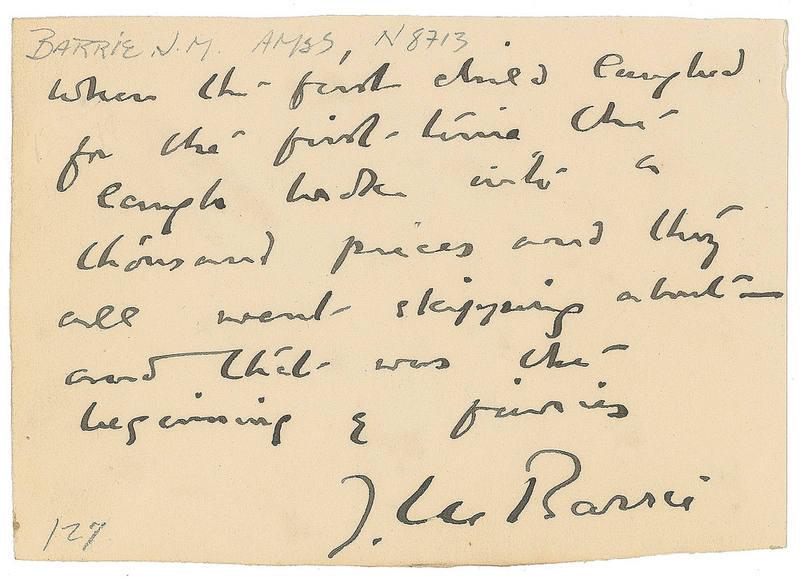 BARRIE J.M. AMsS, N8713
When the first child laughed
for the first time the
laugh broke into a
thousand pieces and they
all went skipping about —
and that was the
beginning of fairies
J. M. Barrie
127